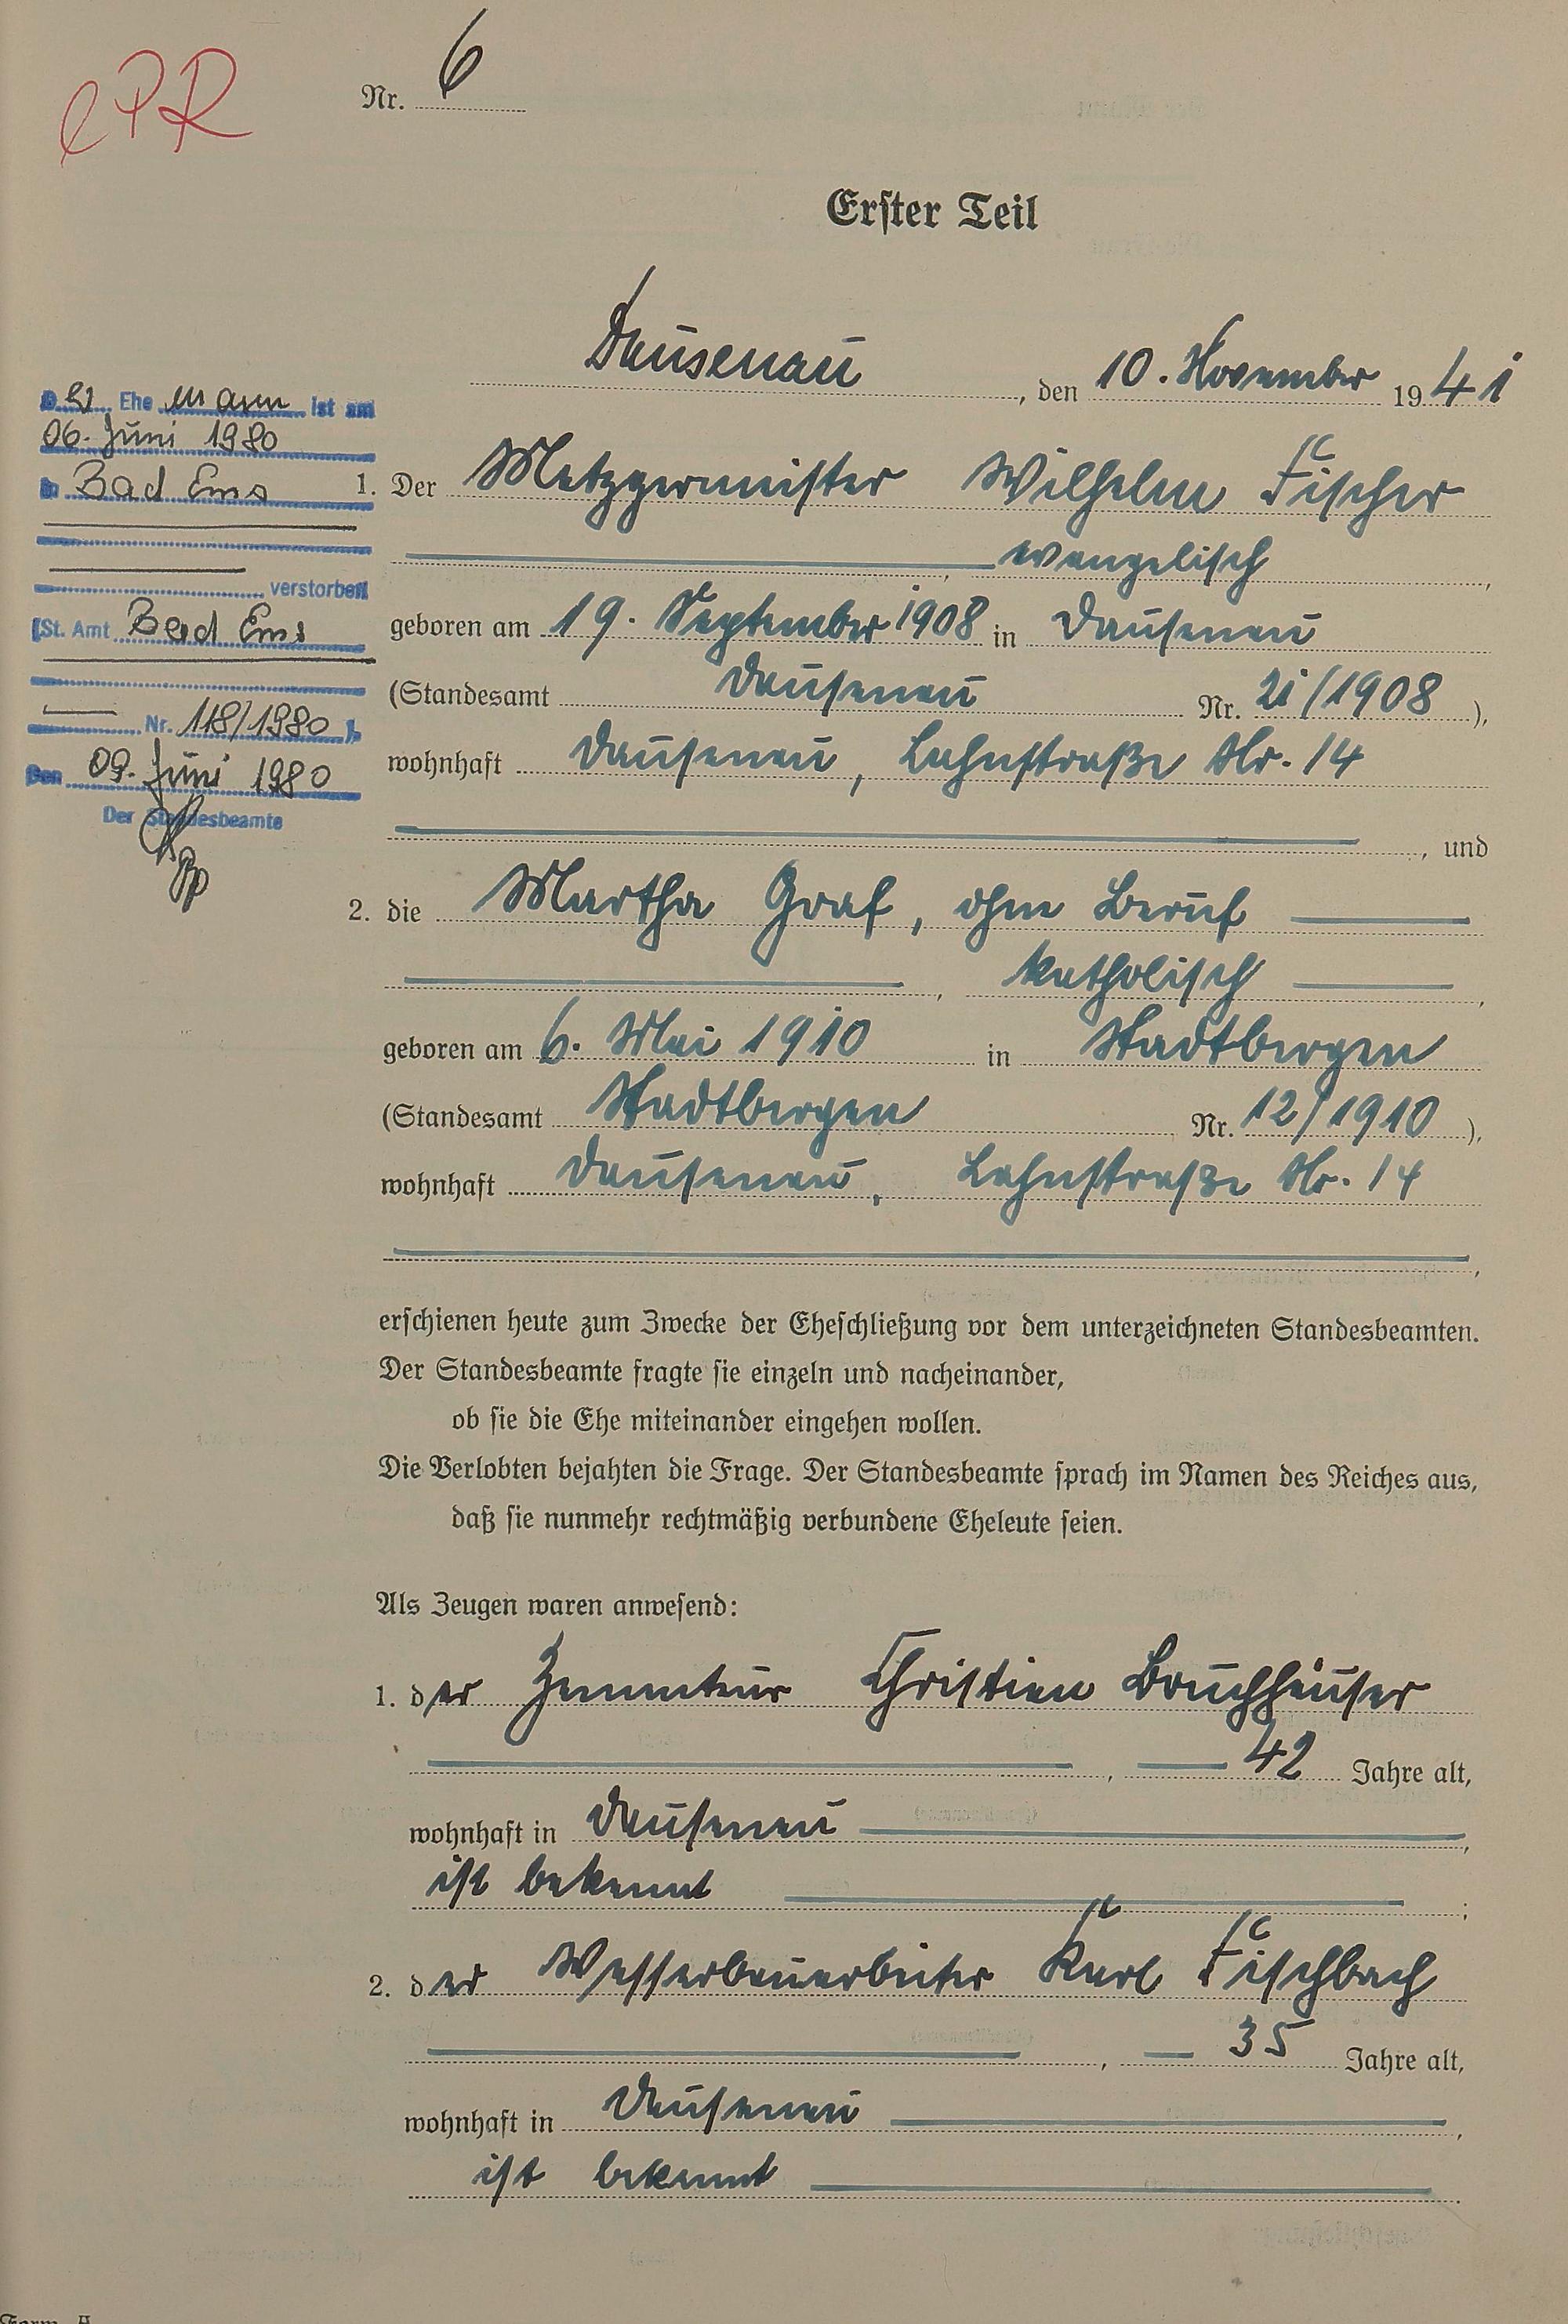 ePR
Nr. 6
Erster Teil
Dausenau, den 10. November 1941
1. Der Metzgermeister Wilhelm Fischer
, evangelisch,
geboren am 19. September 1908 in Dausenau
(Standesamt Dausenau Nr. 21/1908),
wohnhaft Dausenau, Lahnstraße Nr. 14
, und
2. die Martha Graf, ohne Beruf
, katholisch,
geboren am 6. Mai 1910 in Stadtbergen
(Standesamt Stadtbergen Nr. 12/1910),
wohnhaft Dausenau, Lahnstraße Nr. 14
,
erschienen heute zum Zwecke der Eheschließung vor dem unterzeichneten Standesbeamten.
Der Standesbeamte fragte sie einzeln und nacheinander,
ob sie die Ehe miteinander eingehen wollen.
Die Verlobten bejahten die Frage. Der Standesbeamte sprach im Namen des Reiches aus,
daß sie nunmehr rechtmäßig verbundene Eheleute seien.
Als Zeugen waren anwesend:
1. der Christian Bruchhäuser
, 42 Jahre alt,
wohnhaft in Dausenau,
ist bekannt;
2. der Wasserbauarbeiter Karl Fischbach
, 35 Jahre alt,
wohnhaft in Dausenau,
ist bekannt.
Der Ehemann ist am
06. Juni 1980
in Bad Ems
verstorben
(St. Amt Bad Ems
Nr. 118/1980).
Den 09. Juni 1980
Der Standesbeamte
Form. A